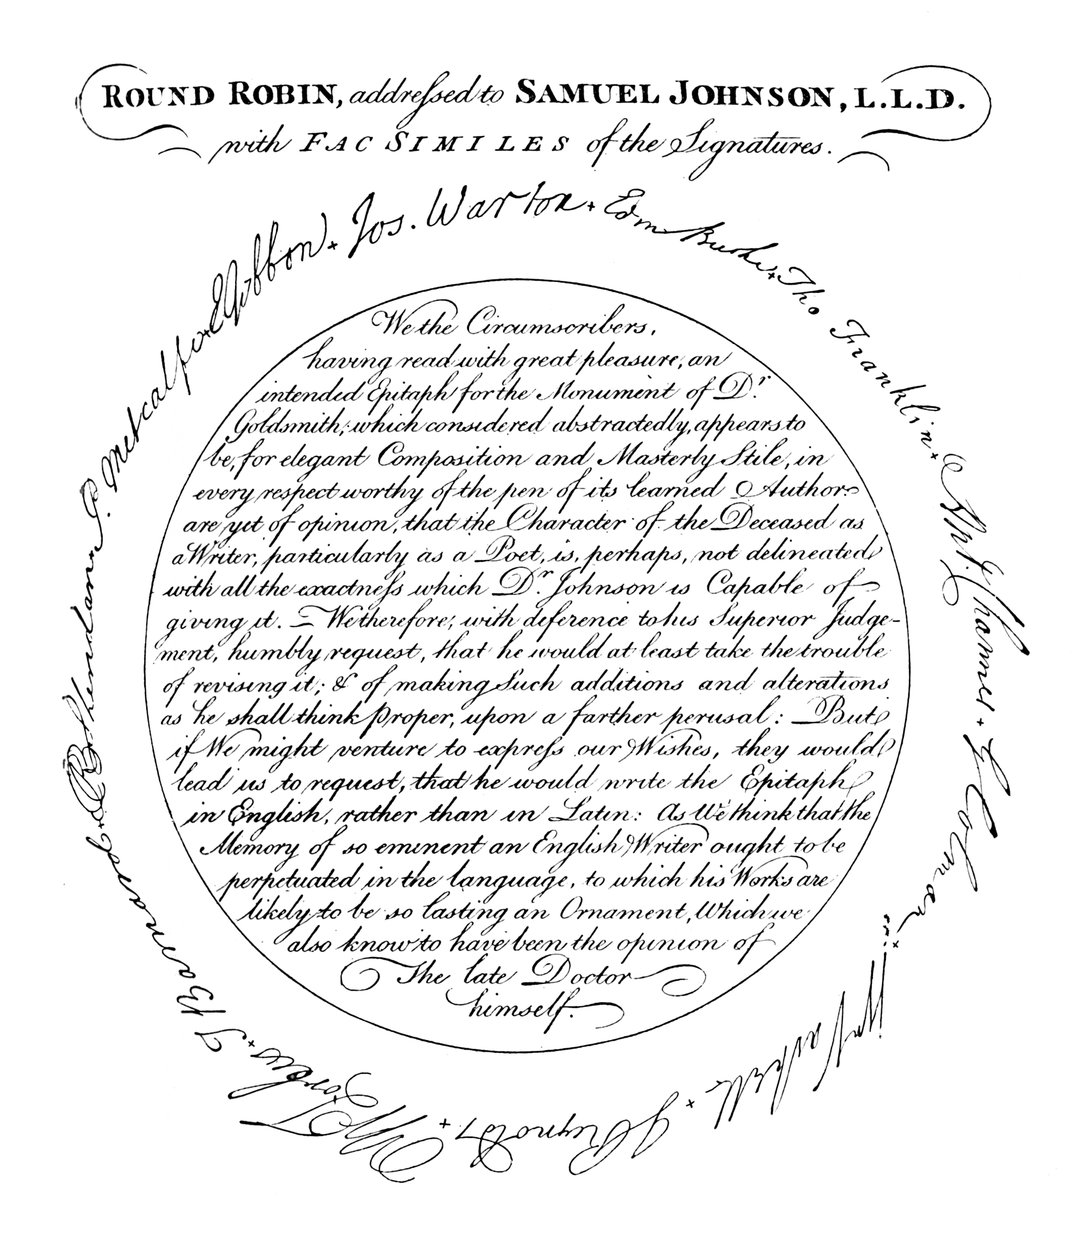 ROUND ROBIN, addreſsed to SAMUEL JOHNSON, L.L.D.
with FAC SIMILES of the Signatures.
EGibbon + Jos. Warton + Edm Burke + Tho Franklin +
Ant Chamier + G Colman +
Wm Vachell + J Reynolds +
W Forbes + T Barnard +
R B Sheridan + P. Metcalfe +
We the Circumscribers,
having read with great pleasure, an
intended Epitaph for the Monument of Dr.
Goldsmith, which considered abstractedly, appears to
be, for elegant Composition and Masterly Stile, in
every respect worthy of the pen of its learned Author
are yet of opinion, that the Character of the Deceased as
a Writer, particularly as a Poet, is, perhaps, not delineated
with all the exactneſs which Dr. Johnson is Capable of
giving it. — We therefore, with deference to his Superior Judge-
ment, humbly request, that he would at least take the trouble
of revising it; & of making Such additions and alterations
as he shall think proper, upon a farther perusal: But
if We might venture to expreſs our Wishes, they would
lead us to request, that he would write the Epitaph
in English, rather than in Latin: As We think that the
Memory of so eminent an English Writer ought to be
perpetuated in the language, to which his Works are
likely to be so lasting an Ornament, Which we
also know to have been the opinion of
The late Doctor
himself.